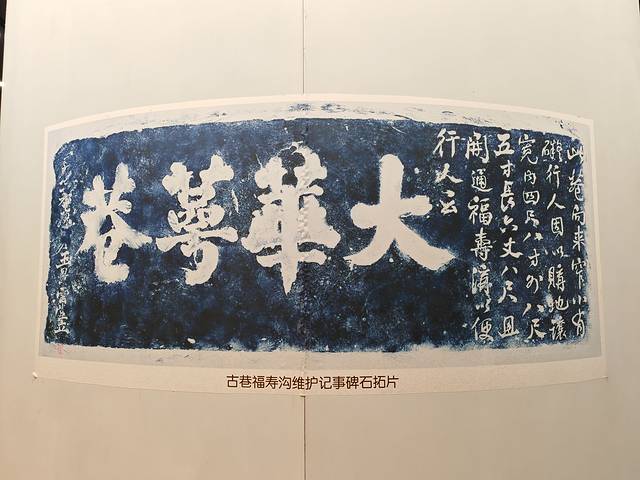 此巷向來窄小有
礙行人因以購地讓
寬內四尺八寸外八尺
五寸長六丈八尺且
開通福壽溝以便
行人云
大華萼巷
立
古巷福寿沟维护记事碑石拓片